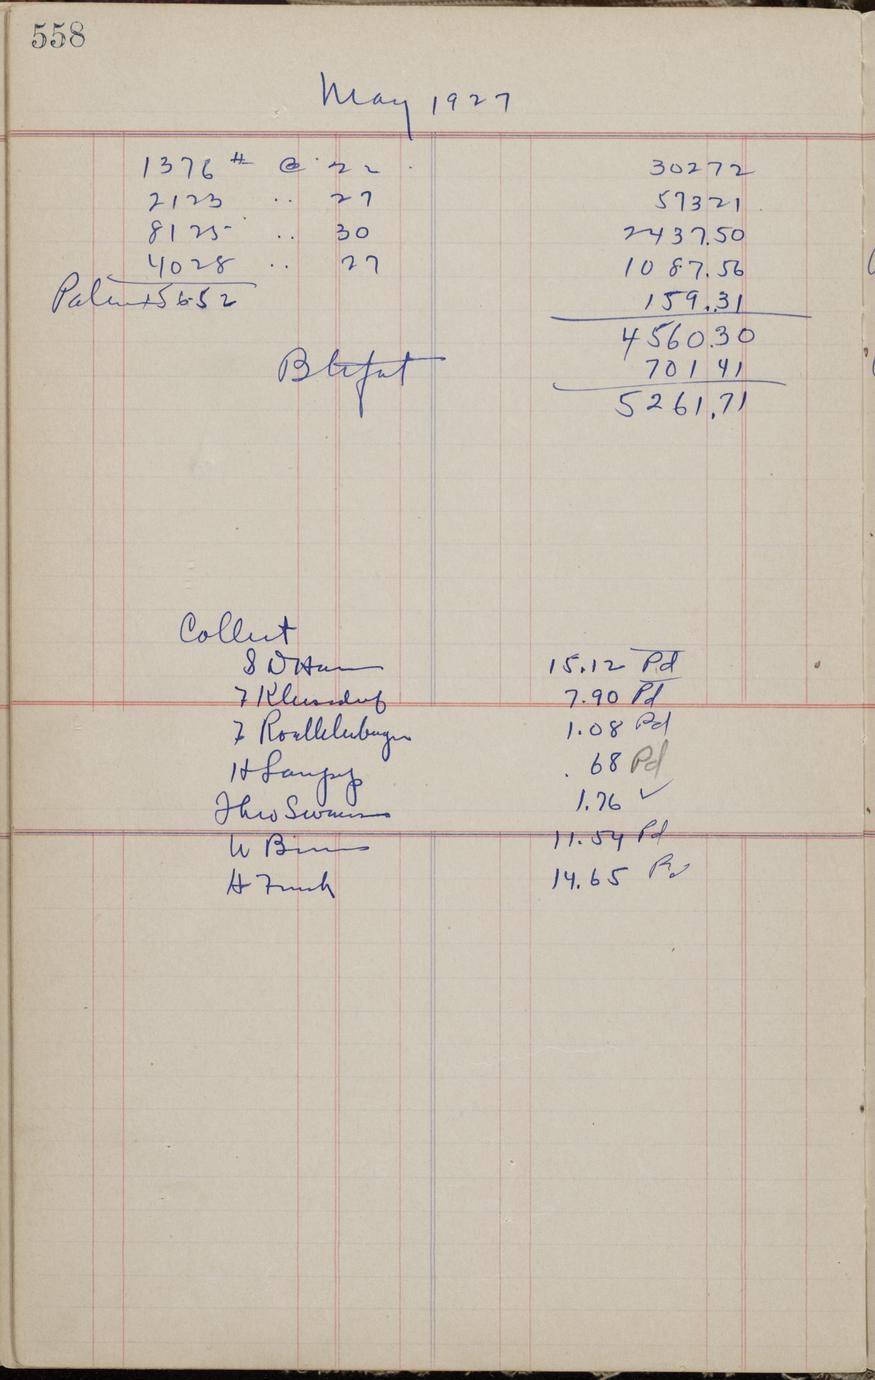 558
May 1927
1376 # @ 22 30272
2123 .. 27 57321
8125 .. 30 2437.50
4028 .. 27 1087.56
15652 159.31
4560.30
Btrfat 70141
5261.71
Collect
15.12 Pd
F 7.90 Pd
F 1.08 Pd
H .68 Pd
Theo 1.76 ✓
W 11.54 Pd
H Funk 14.65 Pd